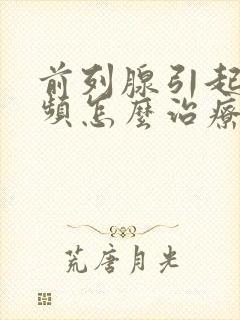 前列腺引起
頻怎麼治療
荒唐月光